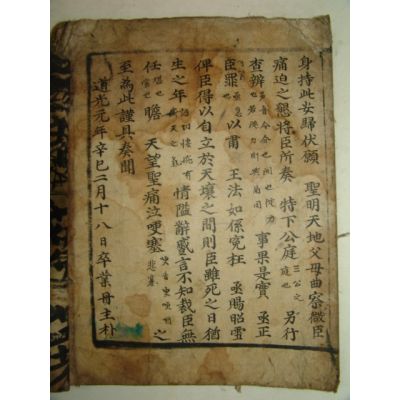 身持此安歸伏願 聖明天地父母曲察微臣
痛迫之懇將臣所奏 特下公庭 三公之庭也 另行
查辨 事果是實 亟正
臣罪 以肅 王法如係寃枉 亟賜昭雪
俾臣得以自立於天壤之間則臣雖死之日猶
生之年 情隘辭蹙言不知裁臣無
任 瞻 天望聖痛泣哽塞 之
至為此謹具奏聞
道光元年辛巳二月十八日卒業母主朴